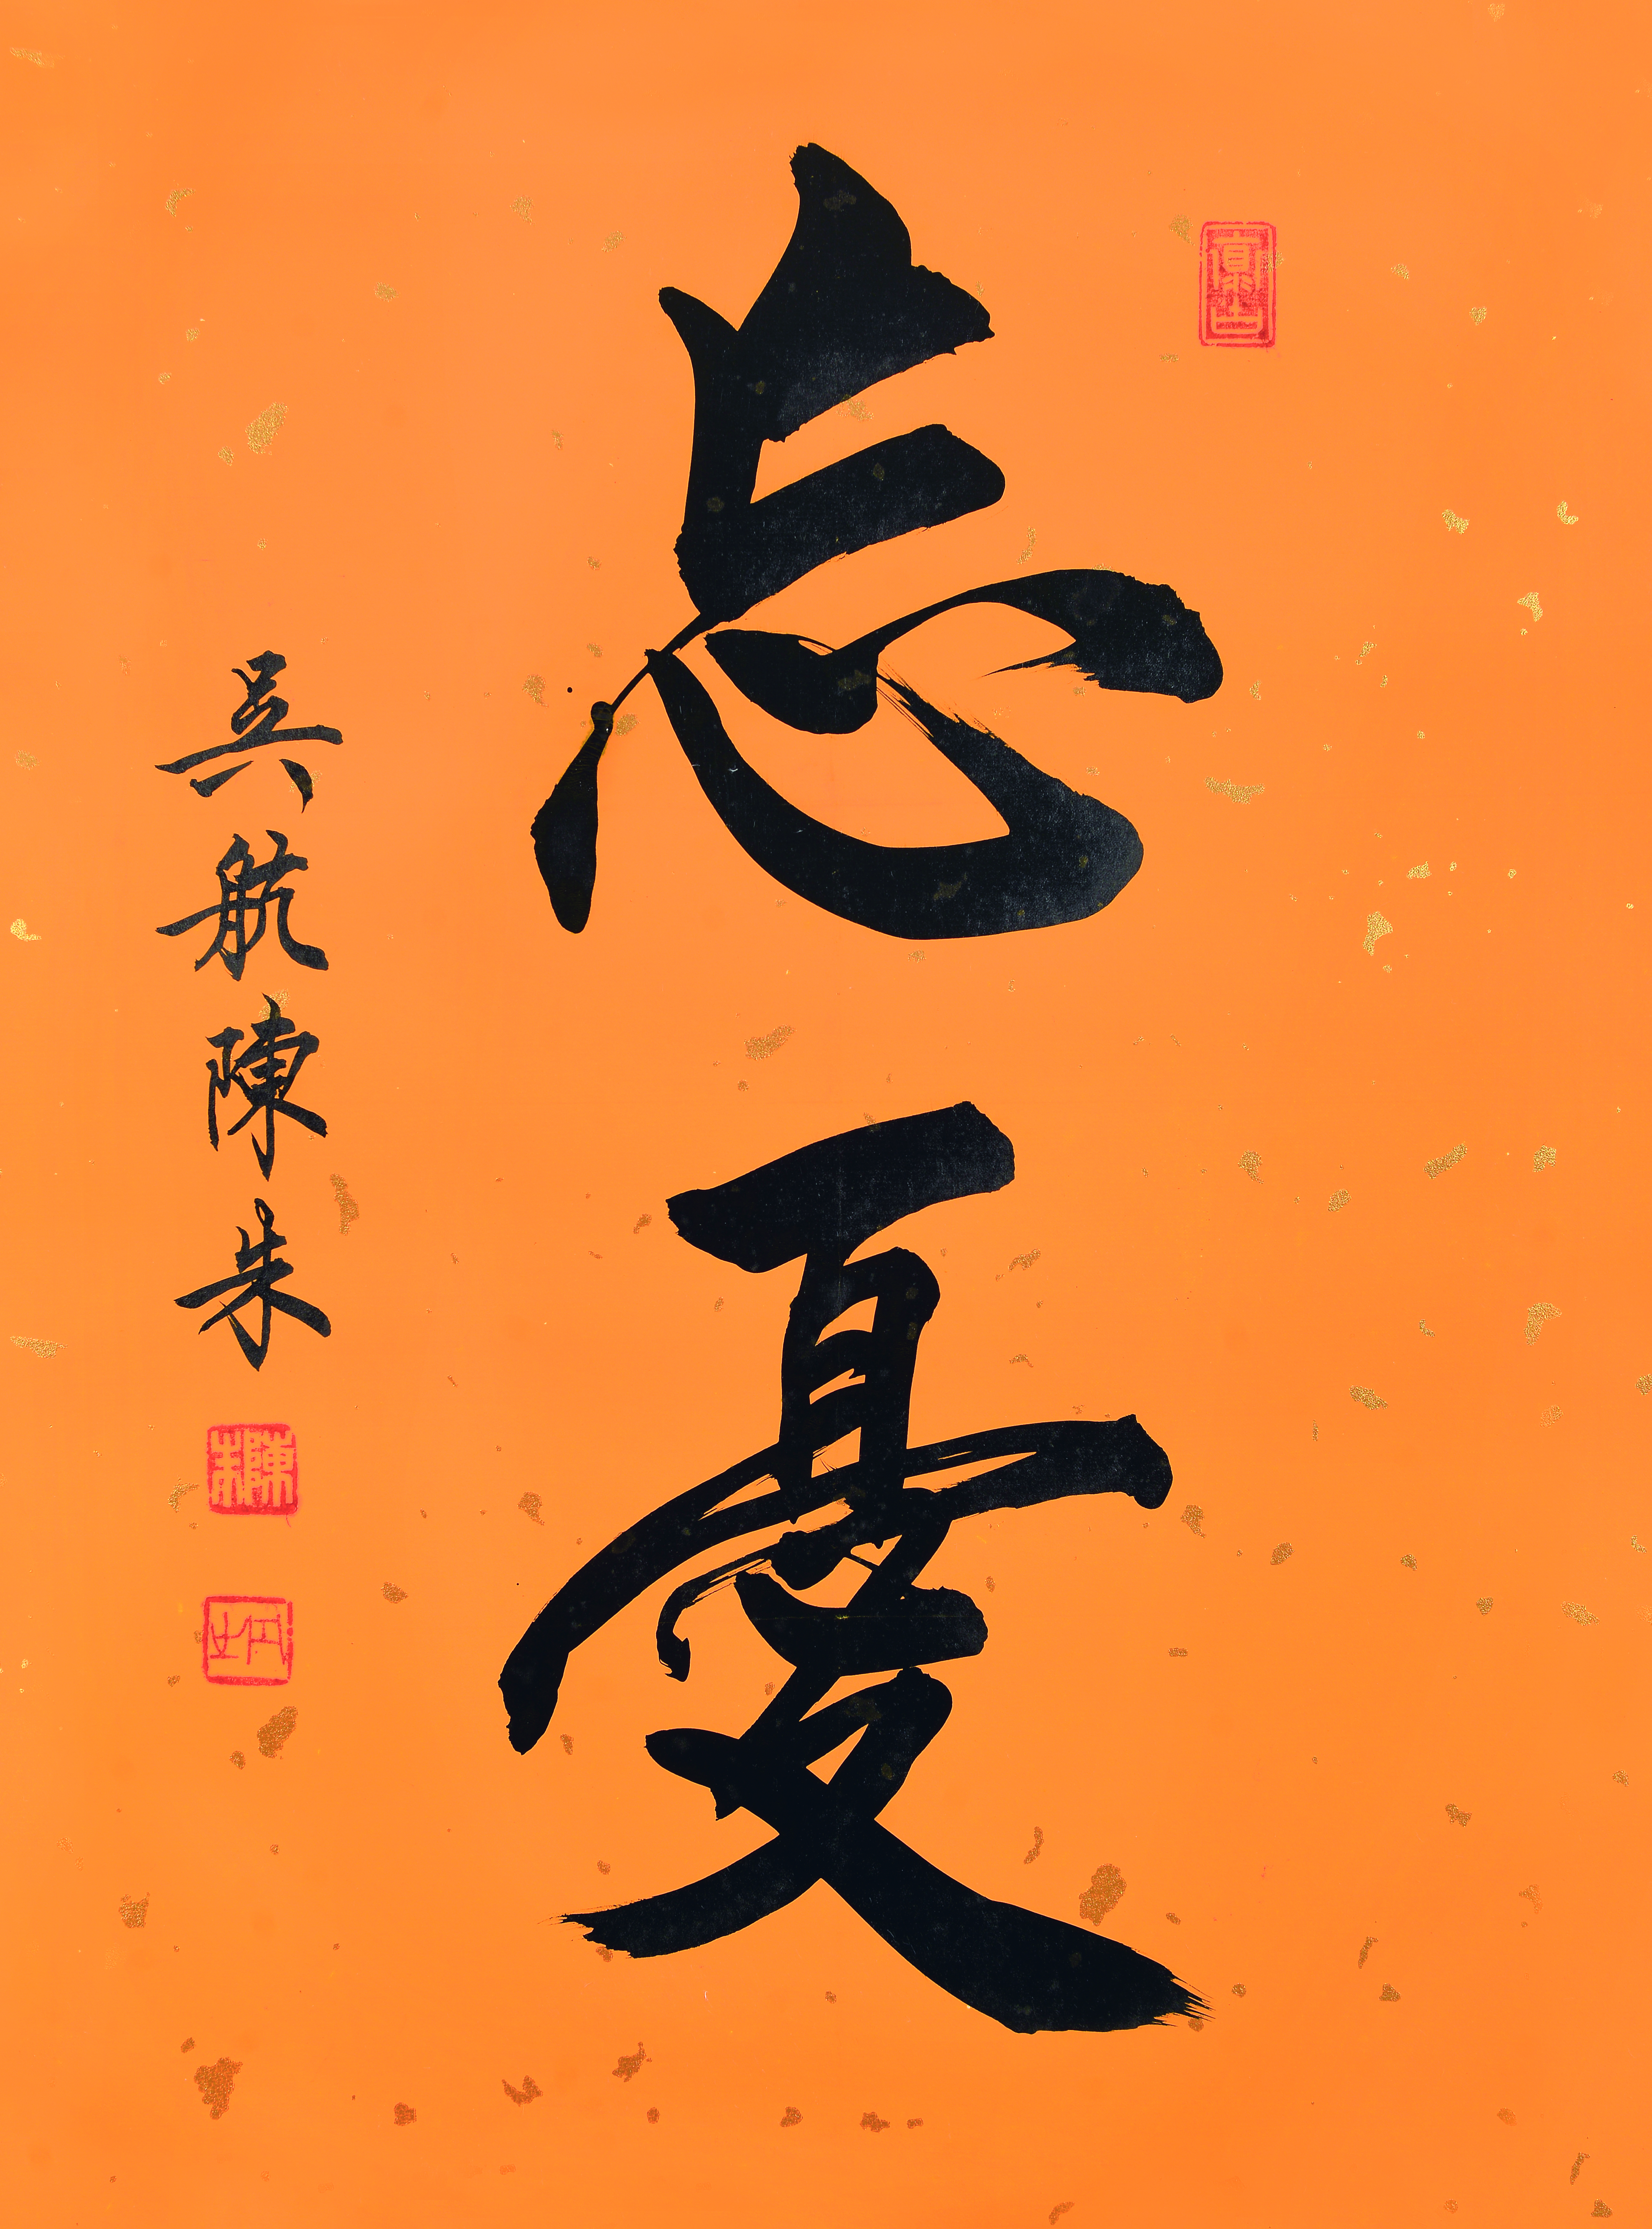 忘憂
吳航陳朱
陳朱